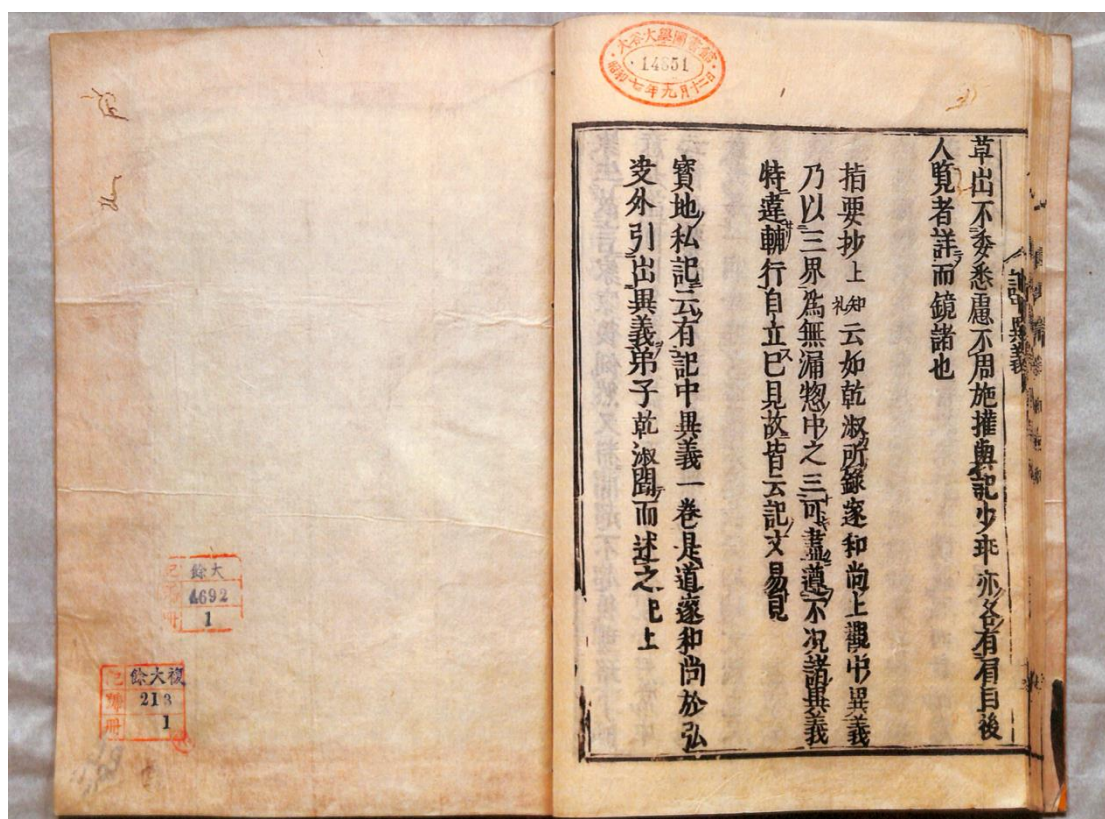 大谷大學圖書館
14651
昭和七年九月十二日
草出不委悉慮不周施搉輿記少非亦各有眉目後
人覽者詳而鏡諸也
指要抄上知礼云如乾淑所錄邃和尚止觀中異義
乃以三界爲無漏惣中之三可盡遵不况諸異義
特違輔行自立已見故皆云記文易見
寳地私記云有記中異義一卷是道邃和尚於弘
决外引出異義弟子乾淑聞而述之已上
大餘
4692
1
冊
複大餘
213
1
冊